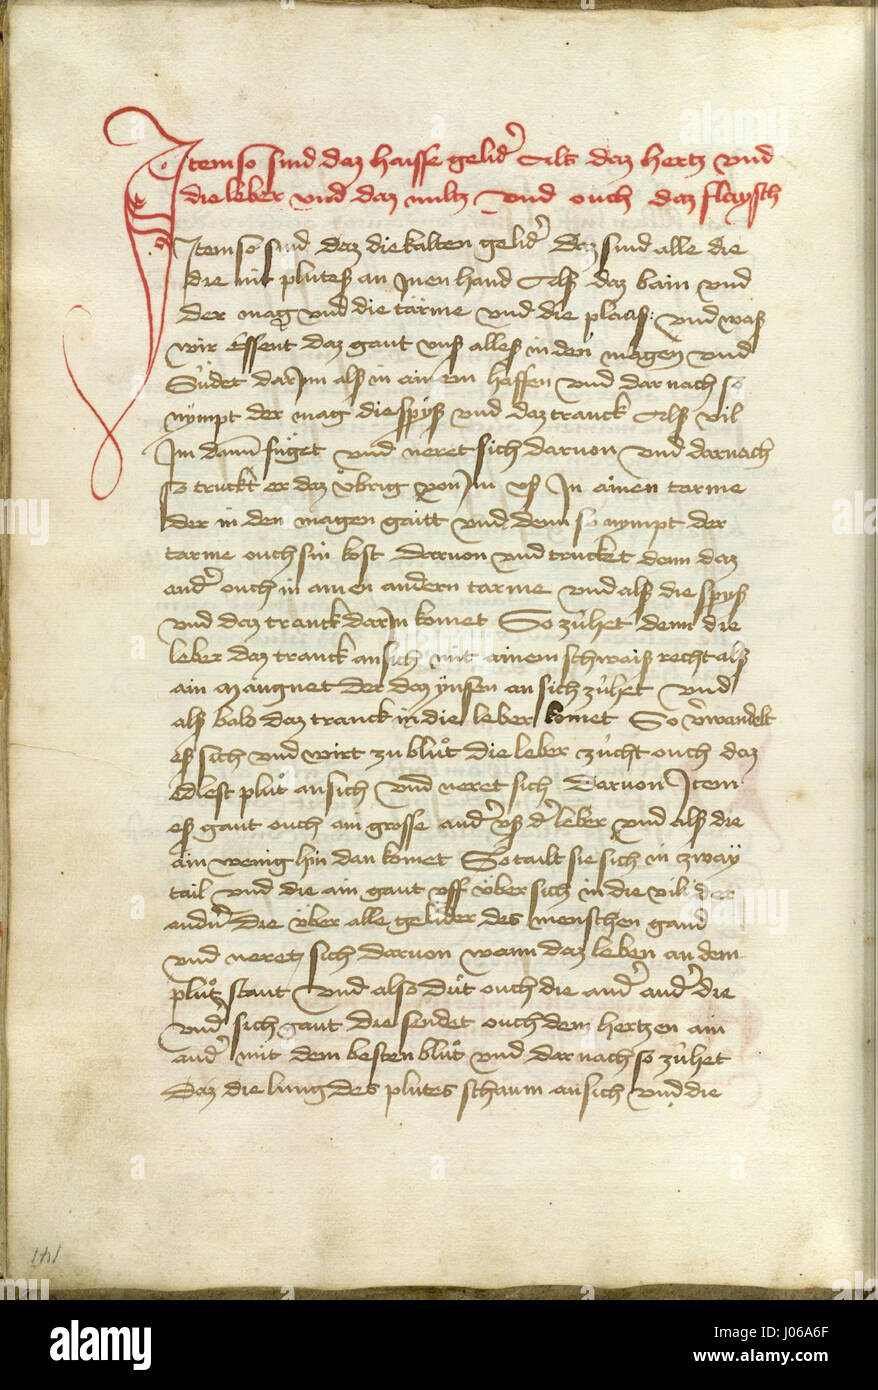 Item so sind daz haisse gelid' Als daz hertz vnd
die leber vnd daz miltz vnd ouch daz flaysch
Item so sind daz die kalten gelid' Daz sind alle die
die nit plutes an Inen hand Alß daz bain vnd
der mag vnd die tärme vnd die plaus: vnd waß
wir Essent daz gaut vnß alleß in den magen vnd
Südet dar Inn alß in ainem haffen vnd dar nach so
nympt der mag die spyß vnd daz tranck Alß vil
Im dann füget vnd neret sich daruon vnd darnach
so truckt er daz übrig von Im vß In ainen tarme
der in den magen gaitt vnd denn so nympt der
tarme ouch sin kost daruon vnd trucket denn daz
and' ouch in ainen andern tarme vnd alß die spyß
vnd daz tranck dar In komet So zühet denn die
leber daz tranck an sich mit ainem schwaiß recht alß
ain Mangnet der daz ynsen an sich zühet vnd
alß bald daz tranck in die leber komet So v'wandelt
eß sich vnd wirt zu blůt die leber zücht ouch daz
edlest plůt an sich vnd neret sich Daruon Item
eß gaut ouch ain grosse aud' vß d' leber vnd alß die
ain wenig hin dan komet So tailt sie sich in zway
tail vnd die ain gaut vff über sich in die
die über alle gelider des menschen gand
vnd neretz sich daruon wann daz leben an dem
plůtz staut vnd also důt ouch die and' aud' die
vnd' sich gaut die sendet ouch dem hertzen ain
aud' mit dem besten blůt vnd dar nach so zühet
Daz die lung des plutes schaum an sich vnd die
alamy
Image ID: J06A6F
www.alamy.com